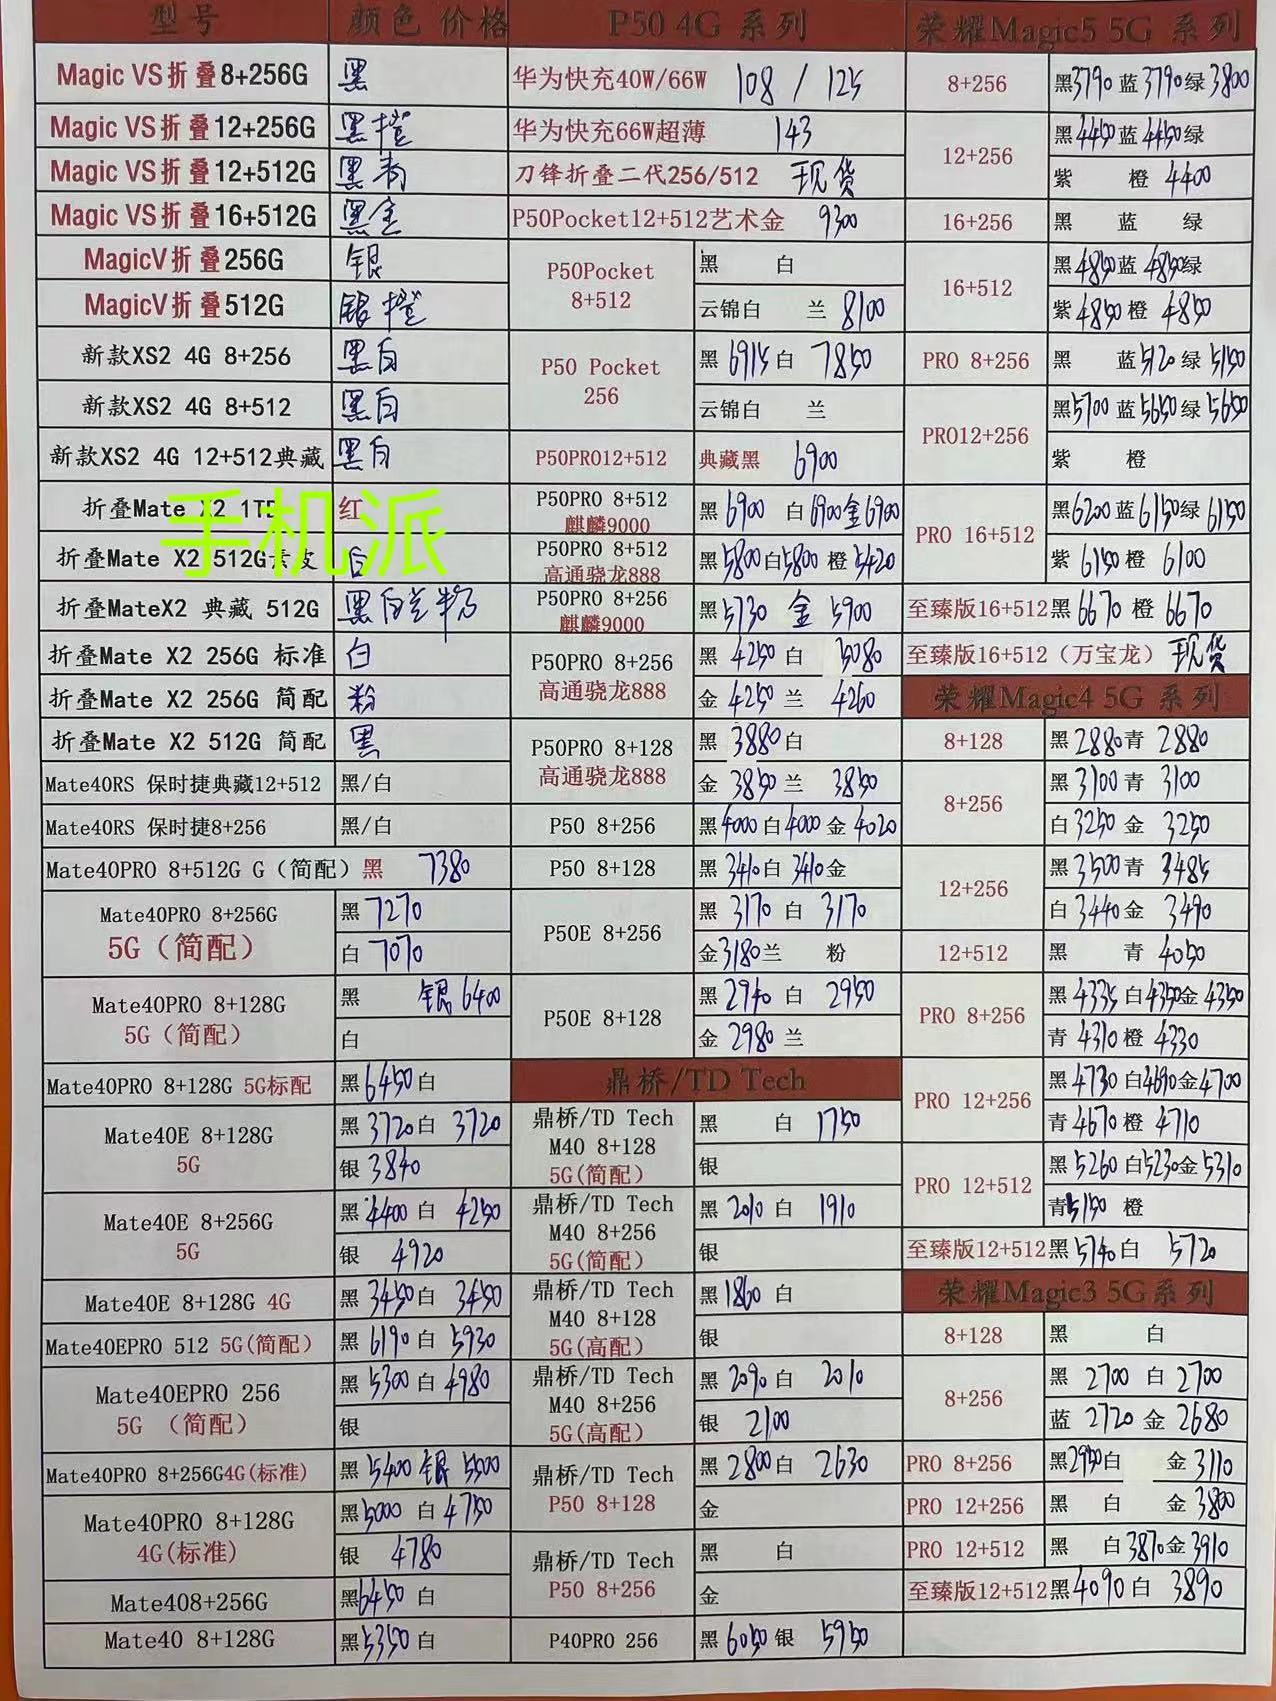 型号 颜色 价格
Magic VS折叠8+256G 黑
Magic VS折叠12+256G 黑橙
Magic VS折叠12+512G 黑青
Magic VS折叠16+512G 黑金
MagicV折叠256G 银
MagicV折叠512G 银橙
新款XS2 4G 8+256 黑白
新款XS2 4G 8+512 黑白
新款XS2 4G 12+512典藏 黑白
折叠Mate X2 1TB 红
手机派
折叠Mate X2 512G素皮 白
折叠MateX2 典藏 512G 黑白兰粉
折叠Mate X2 256G 标准 白
折叠Mate X2 256G 简配 粉
折叠Mate X2 512G 简配 黑
Mate40RS 保时捷典藏12+512 黑/白
Mate40RS 保时捷8+256 黑/白
Mate40PRO 8+512G G（简配）黑 7380
Mate40PRO 8+256G
5G（简配）
黑 7270
白 7070
Mate40PRO 8+128G
5G（简配）
黑 银 6400
白
Mate40PRO 8+128G 5G标配 黑 6450 白
Mate40E 8+128G
5G
黑 3720 白 3720
银 3840
Mate40E 8+256G
5G
黑 4400 白 4250
银 4920
Mate40E 8+128G 4G 黑 3450 白 3450
Mate40EPRO 512 5G(简配) 黑 6190 白 5930
Mate40EPRO 256
5G （简配）
黑 5300 白 4980
银
Mate40PRO 8+256G4G(标准) 黑 5400 银 5500
Mate40PRO 8+128G
4G(标准)
黑 5000 白 4750
银 4780
Mate408+256G 黑 6450 白
Mate40 8+128G 黑 5350 白
P50 4G 系列
华为快充40W/66W 108 / 125
华为快充66W超薄 143
刀锋折叠二代256/512 现货
P50Pocket12+512艺术金 9300
P50Pocket
8+512
黑 白
云锦白 兰 8100
P50 Pocket
256
黑 6915 白 7850
云锦白 兰
P50PRO12+512 典藏黑 6900
P50PRO 8+512
麒麟9000
黑 6900 白 6900 金 6900
P50PRO 8+512
高通骁龙888
黑 5800 白 5800 橙 5420
P50PRO 8+256
麒麟9000
黑 5730 金 5900
P50PRO 8+256
高通骁龙888
黑 4250 白 5080
金 4250 兰 4260
P50PRO 8+128
高通骁龙888
黑 3880 白
金 3850 兰 3850
P50 8+256 黑 4000 白 4000 金 4020
P50 8+128 黑 3410 白 3410 金
P50E 8+256
黑 3170 白 3170
金 3180 兰 粉
P50E 8+128
黑 2940 白 2950
金 2980 兰
鼎桥/TD Tech
鼎桥/TD Tech
M40 8+128
5G(简配)
黑 白 1750
银
鼎桥/TD Tech
M40 8+256
5G(简配)
黑 2010 白 1910
银
鼎桥/TD Tech
M40 8+128
5G(高配)
黑 1860 白
银
鼎桥/TD Tech
M40 8+256
5G(高配)
黑 2090 白 2010
银 2100
鼎桥/TD Tech
P50 8+128
黑 2800 白 2630
金
鼎桥/TD Tech
P50 8+256
黑 白
金
P40PRO 256 黑 6050 银 5950
荣耀Magic5 5G 系列
8+256 黑 3790 蓝 3790 绿 3800
12+256
黑 4450 蓝 4450 绿
紫 橙 4400
16+256 黑 蓝 绿
16+512
黑 4850 蓝 4850 绿
紫 4850 橙 4850
PRO 8+256 黑 蓝 5120 绿 5150
PRO12+256
黑 5700 蓝 5650 绿 5650
紫 橙
PRO 16+512
黑 6200 蓝 6150 绿 6150
紫 6150 橙 6100
至臻版16+512 黑 6670 橙 6670
至臻版16+512（万宝龙） 现货
荣耀Magic4 5G 系列
8+128 黑 2880 青 2880
8+256
黑 3100 青 3100
白 3250 金 3250
12+256
黑 3500 青 3485
白 3440 金 3490
12+512 黑 青 4050
PRO 8+256
黑 4335 白 4350 金 4350
青 4310 橙 4330
PRO 12+256
黑 4730 白 4690 金 4700
青 4670 橙 4710
PRO 12+512
黑 5260 白 5230 金 5310
青 5150 橙
至臻版12+512 黑 5740 白 5720
荣耀Magic3 5G系列
8+128 黑 白
8+256
黑 2700 白 2700
蓝 2720 金 2680
PRO 8+256 黑 2950 白 金 3110
PRO 12+256 黑 白 金 3800
PRO 12+512 黑 白 3870 金 3910
至臻版12+512 黑 4090 白 3890